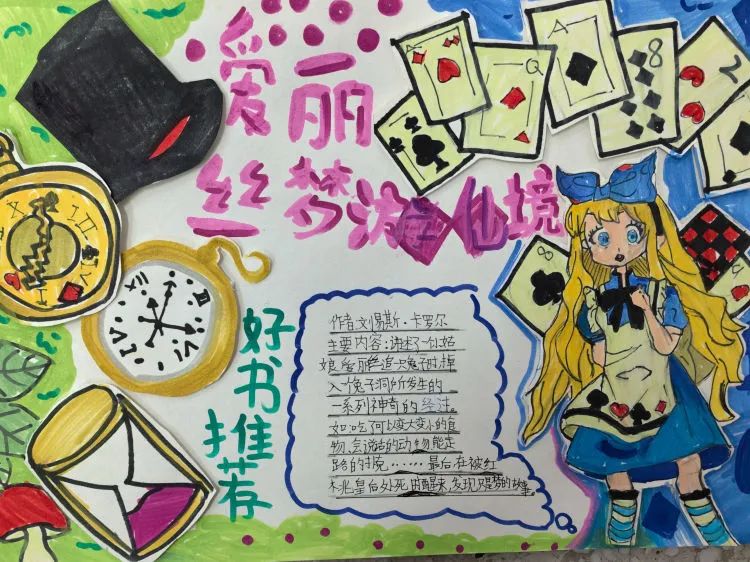 爱丽
丝梦游仙境
A
Q
A
8
2
8
好书推荐
作者:刘易斯·卡罗尔
主要内容:讲了一个小姑
娘爱丽丝追一只兔子时掉
入兔子洞所发生的
一系列神奇的经过。
如:吃了可以变大变小的食
物、会说话的动物、能走
路的扑克……最后在被红
桃皇后处死时醒来,发现是梦的故事。